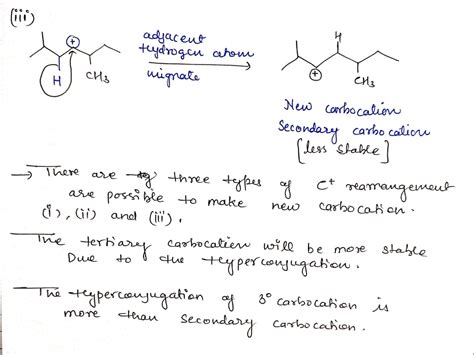 (iii)
⊕
H
CH3
adjacent
Hydrogen atom
migrate
H
⊕
CH3
New carbocation
Secondary carbocation
[less stable]
→ There are three types of C+ rearrangement
are possible to make new carbocation.
(i), (ii) and (iii).
The tertiary carbocation will be more stable
Due to the Hyperconjugation.
The Hyperconjugation of 3° carbocation is
more than secondary carbocation.